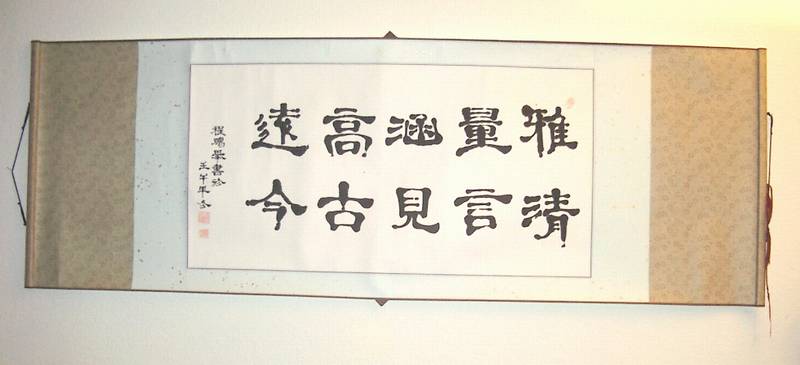 雅量涵高遠
清言見古今
程 書於
壬午年